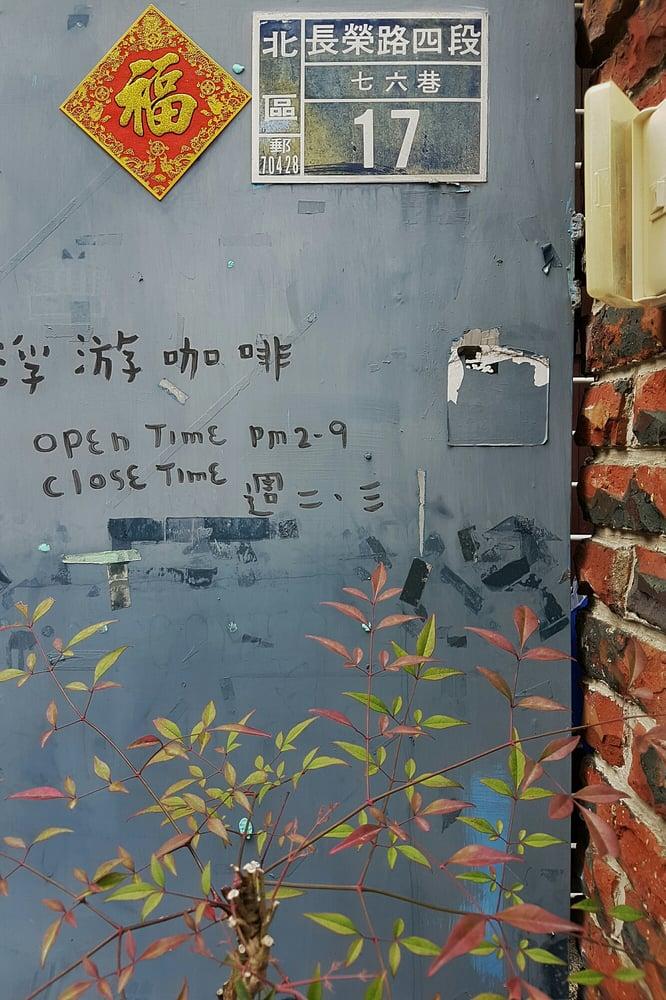 福
北區
郵
70428
長榮路四段
七六巷
17
浮游咖啡
OPEN TIME PM2-9
CLOSE TIME 週二、三